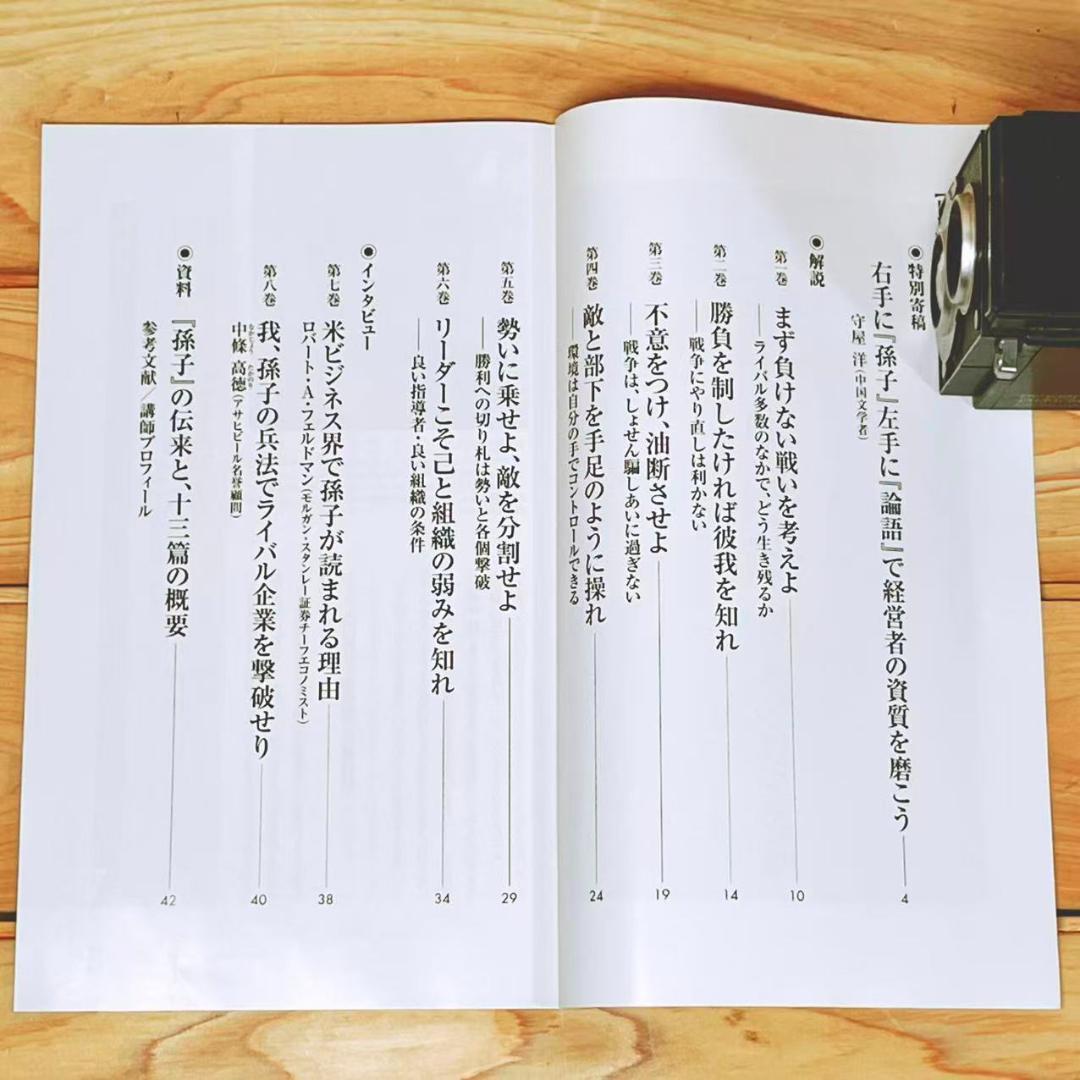 ◉特別寄稿
右手に『孫子』左手に『論語』で経営者の資質を磨こう 4
守屋 洋(中国文学者)
◉解説
第一巻 まず負けない戦いを考えよ 10
——ライバル多数のなかで、どう生き残るか
第二巻 勝負を制したければ彼我を知れ 14
——戦争にやり直しは利かない
第三巻 不意をつけ、油断させよ 19
——戦争は、しょせん騙しあいに過ぎない
第四巻 敵と部下を手足のように操れ 24
——環境は自分の手でコントロールできる
第五巻 勢いに乗せよ、敵を分割せよ 29
——勝利への切り札は勢いと各個撃破
第六巻 リーダーこそ己と組織の弱みを知れ 34
——良い指導者・良い組織の条件
◉インタビュー
第七巻 米ビジネス界で孫子が読まれる理由 38
ロバート・A・フェルドマン(モルガン・スタンレー証券チーフエコノミスト)
第八巻 我、孫子の兵法でライバル企業を撃破せり 40
中條 高德(アサヒビール名誉顧問)
◉資料 『孫子』の伝来と、十三篇の概要 42
参考文献/講師プロフィール